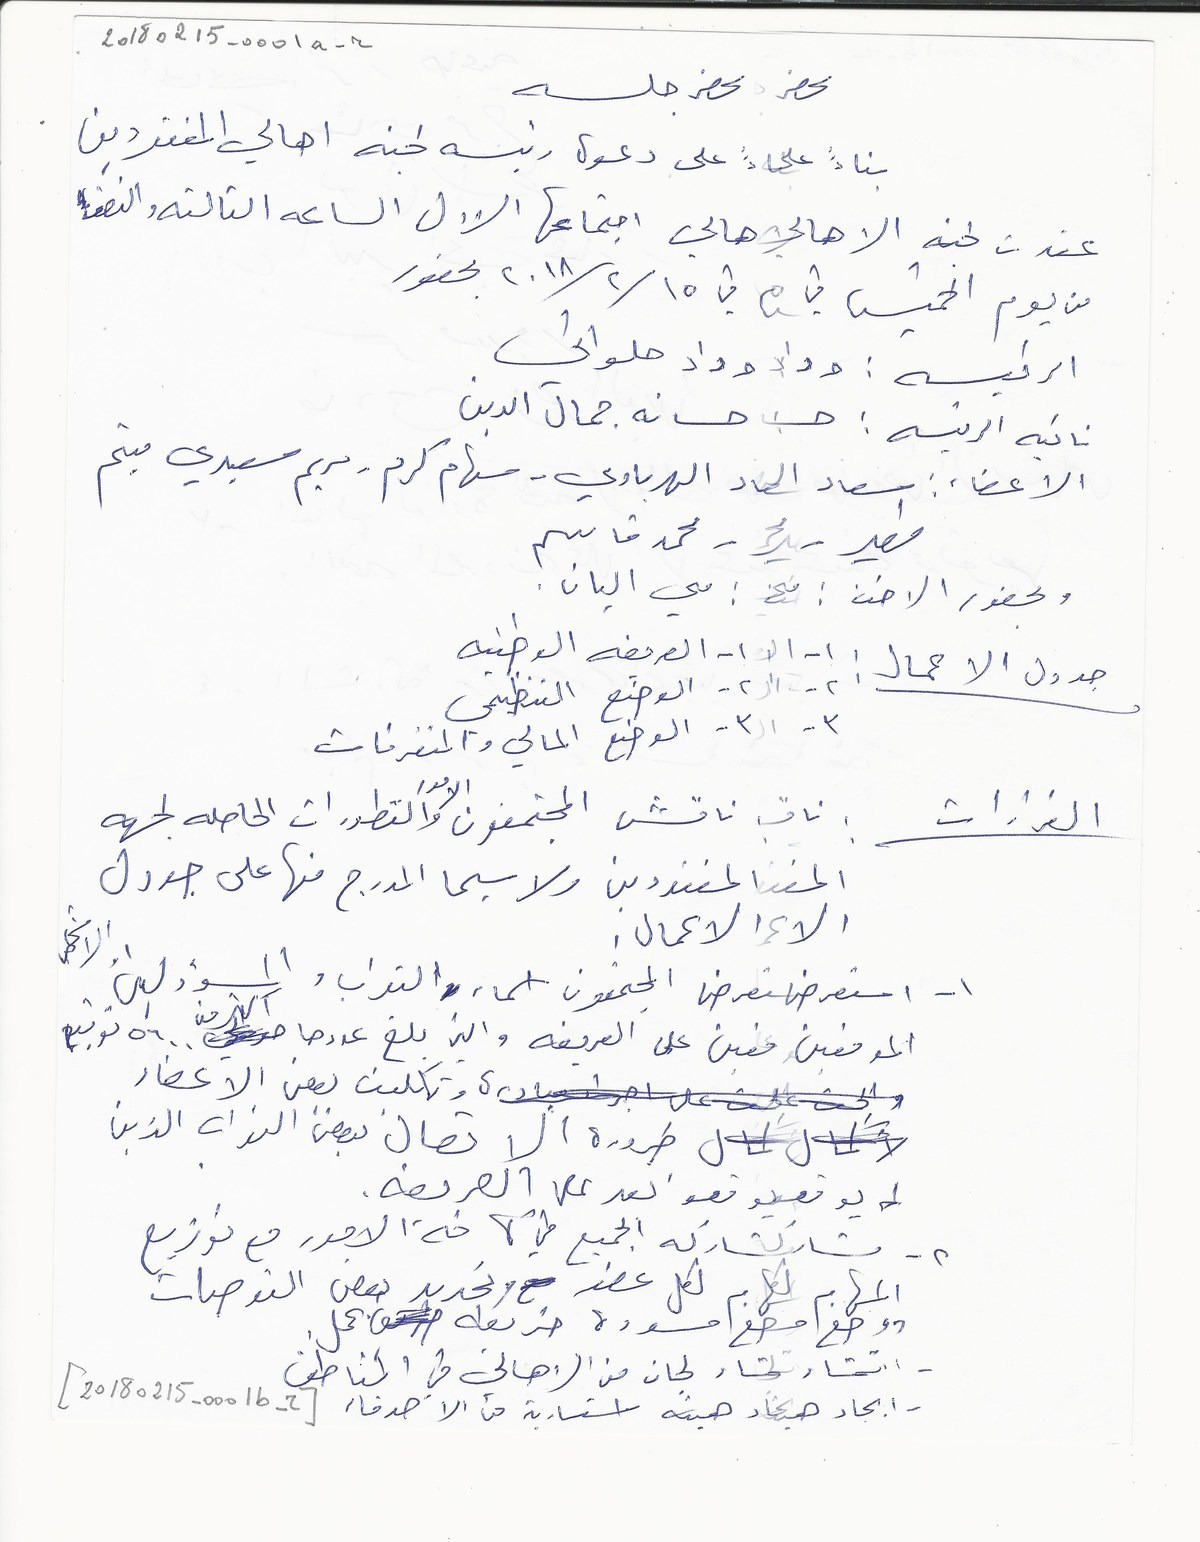 20180215_0001a_r
محضر محضر جلسه
بناءً على دعوة رئيسه لجنه اهالي المفقودين
عقدت لجنه الاهالي اجتماعها الاول الساعه الثالثه والنصف
من يوم الخميس في في ١٥/٢/٢٠١٨ بحضور
الرئيسه : وداد حلواني
نائبه الرئيسه : حسانه جمال الدين
الاعضاء : سعاد الهرباوي - سهام كرم - مريم سعيدي
- محمد قاسم
وبحضور الاخت : مي اليان .
جدول الاعمال : ١- ١- العريضه الوطنيه
٢- ٢- الوضع التنظيمي
٣- ٣- الوضع المالي والمتفرقات
القرارات : ناقش المجتمعون الامور والتطورات الحاصله لجهه
المفقودين ولا سيما المدرج منها على جدول
الاعمال :
١- استعرض المجتمعون اسماء النواب و
الموقعين على العريضه والتي بلغ عددها اكثر من توقيع
وتكليف بعض الاعضاء
ضرورة الاتصال ببعض النواب الذين
لم يوقعوا بعد على العريضه .
٢- مشاركه الجميع في كافة الامور مع توزيع
المهام لكل عضو وتحديد بعض التوصيات
ووضع مسودة خريطه عمل .
- انشاء لجان من الاهالي في المناطق
- ايجاد هيئه استشارية من الاصدقاء [20180215_0001b_r]